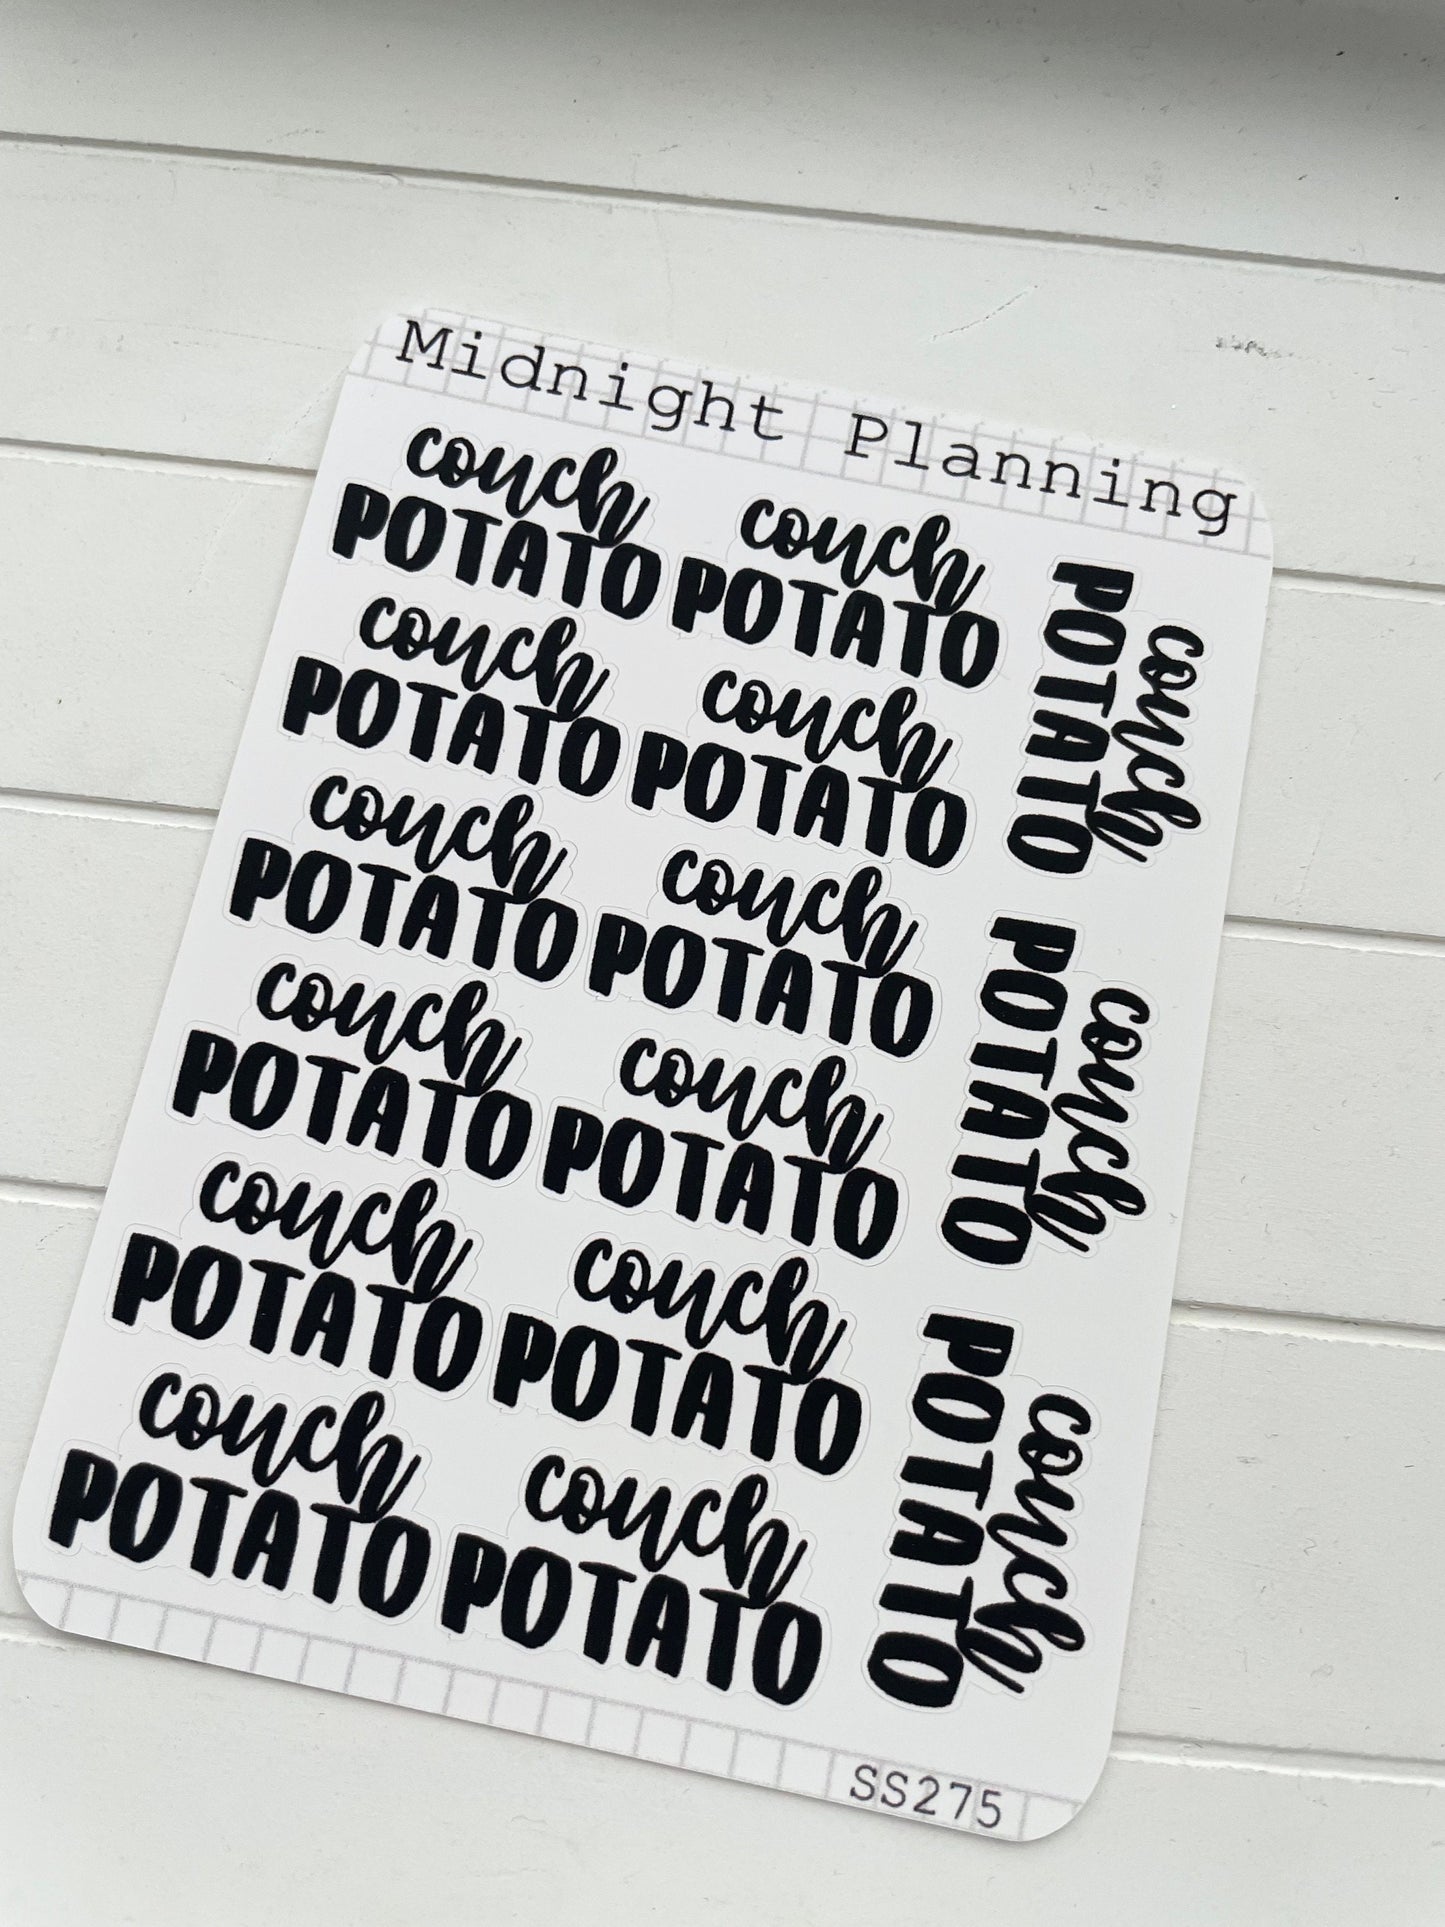 Midnight Planning
couch
POTATO
couch
POTATO
couch
POTATO
couch
POTATO
couch
POTATO
couch
POTATO
couch
POTATO
couch
POTATO
couch
POTATO
couch
POTATO
couch
POTATO
couch
POTATO
couch
POTATO
couch
POTATO
couch
POTATO
SS275